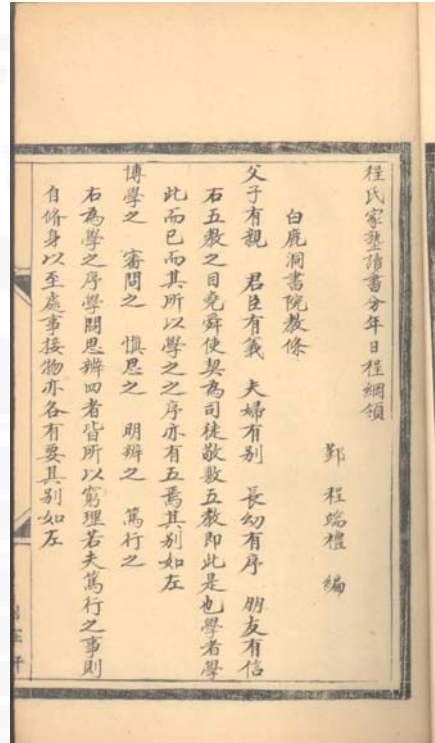 程氏家塾讀書分年日程綱領
鄞 程端禮 編
白鹿洞書院教條
父子有親 君臣有義 夫婦有別 長幼有序 朋友有信
右五教之目堯舜使契為司徒敬敷五教即此是也學者學
此而已而其所以學之之序亦有五焉其別如左
博學之 審問之 慎思之 明辨之 篤行之
右為學之序學問思辨四者皆所以窮理若夫篤行之事則
自脩身以至處事接物亦各有要其別如左